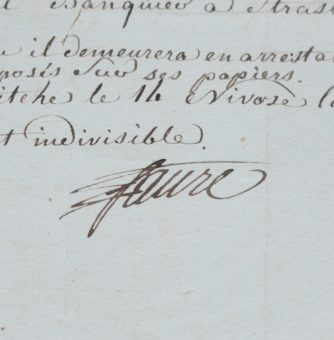 Banquier a Stras
il demeurera en arresta
posés sur ses papiers.
itche le 14 Nivose
t indivisible.
Faure